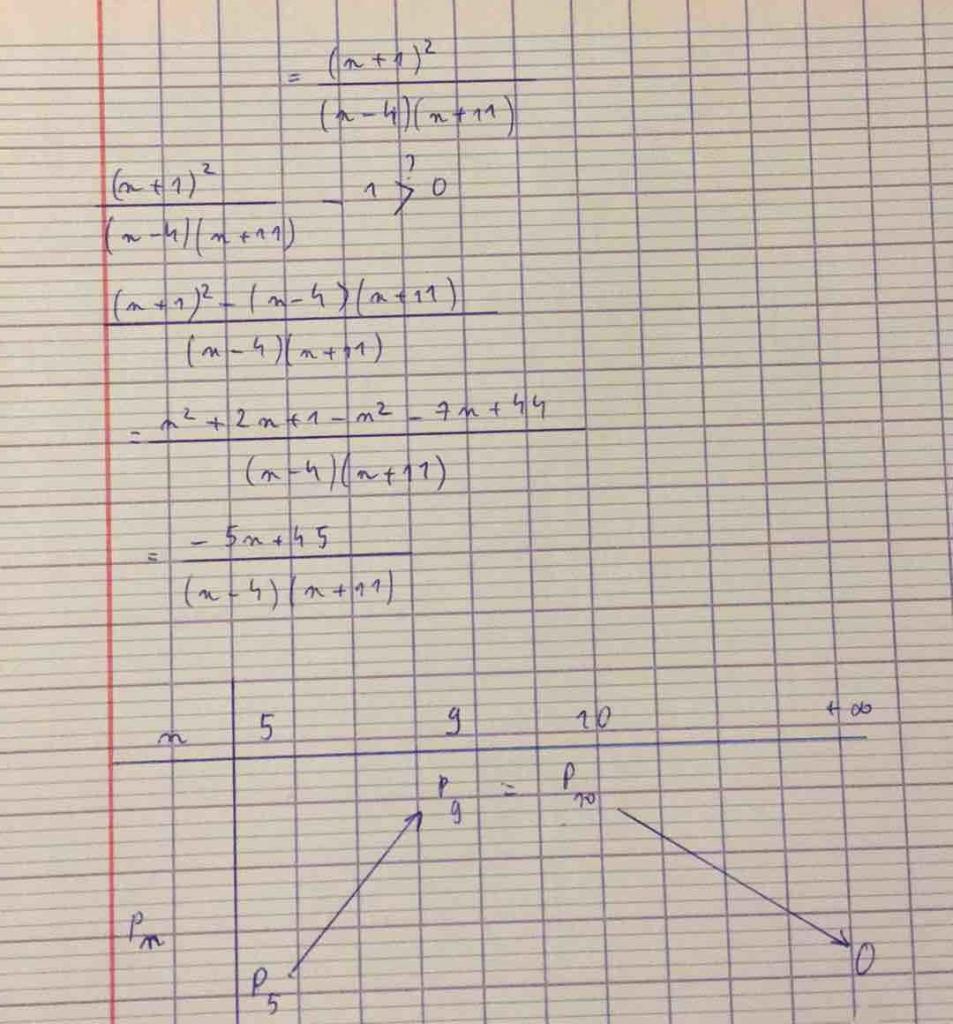 = (n+1)² / (n-4)(n+11)
(n+1)² / (n-4)(n+11) - 1 >? 0
(n+1)² - (n-4)(n+11) / (n-4)(n+11)
= n² + 2n + 1 - n² - 7n + 44 / (n-4)(n+11)
= - 5n + 45 / (n-4)(n+11)
n 5 9 10 +∞
P₉ = P₁₀
Pₙ
P₅ 0